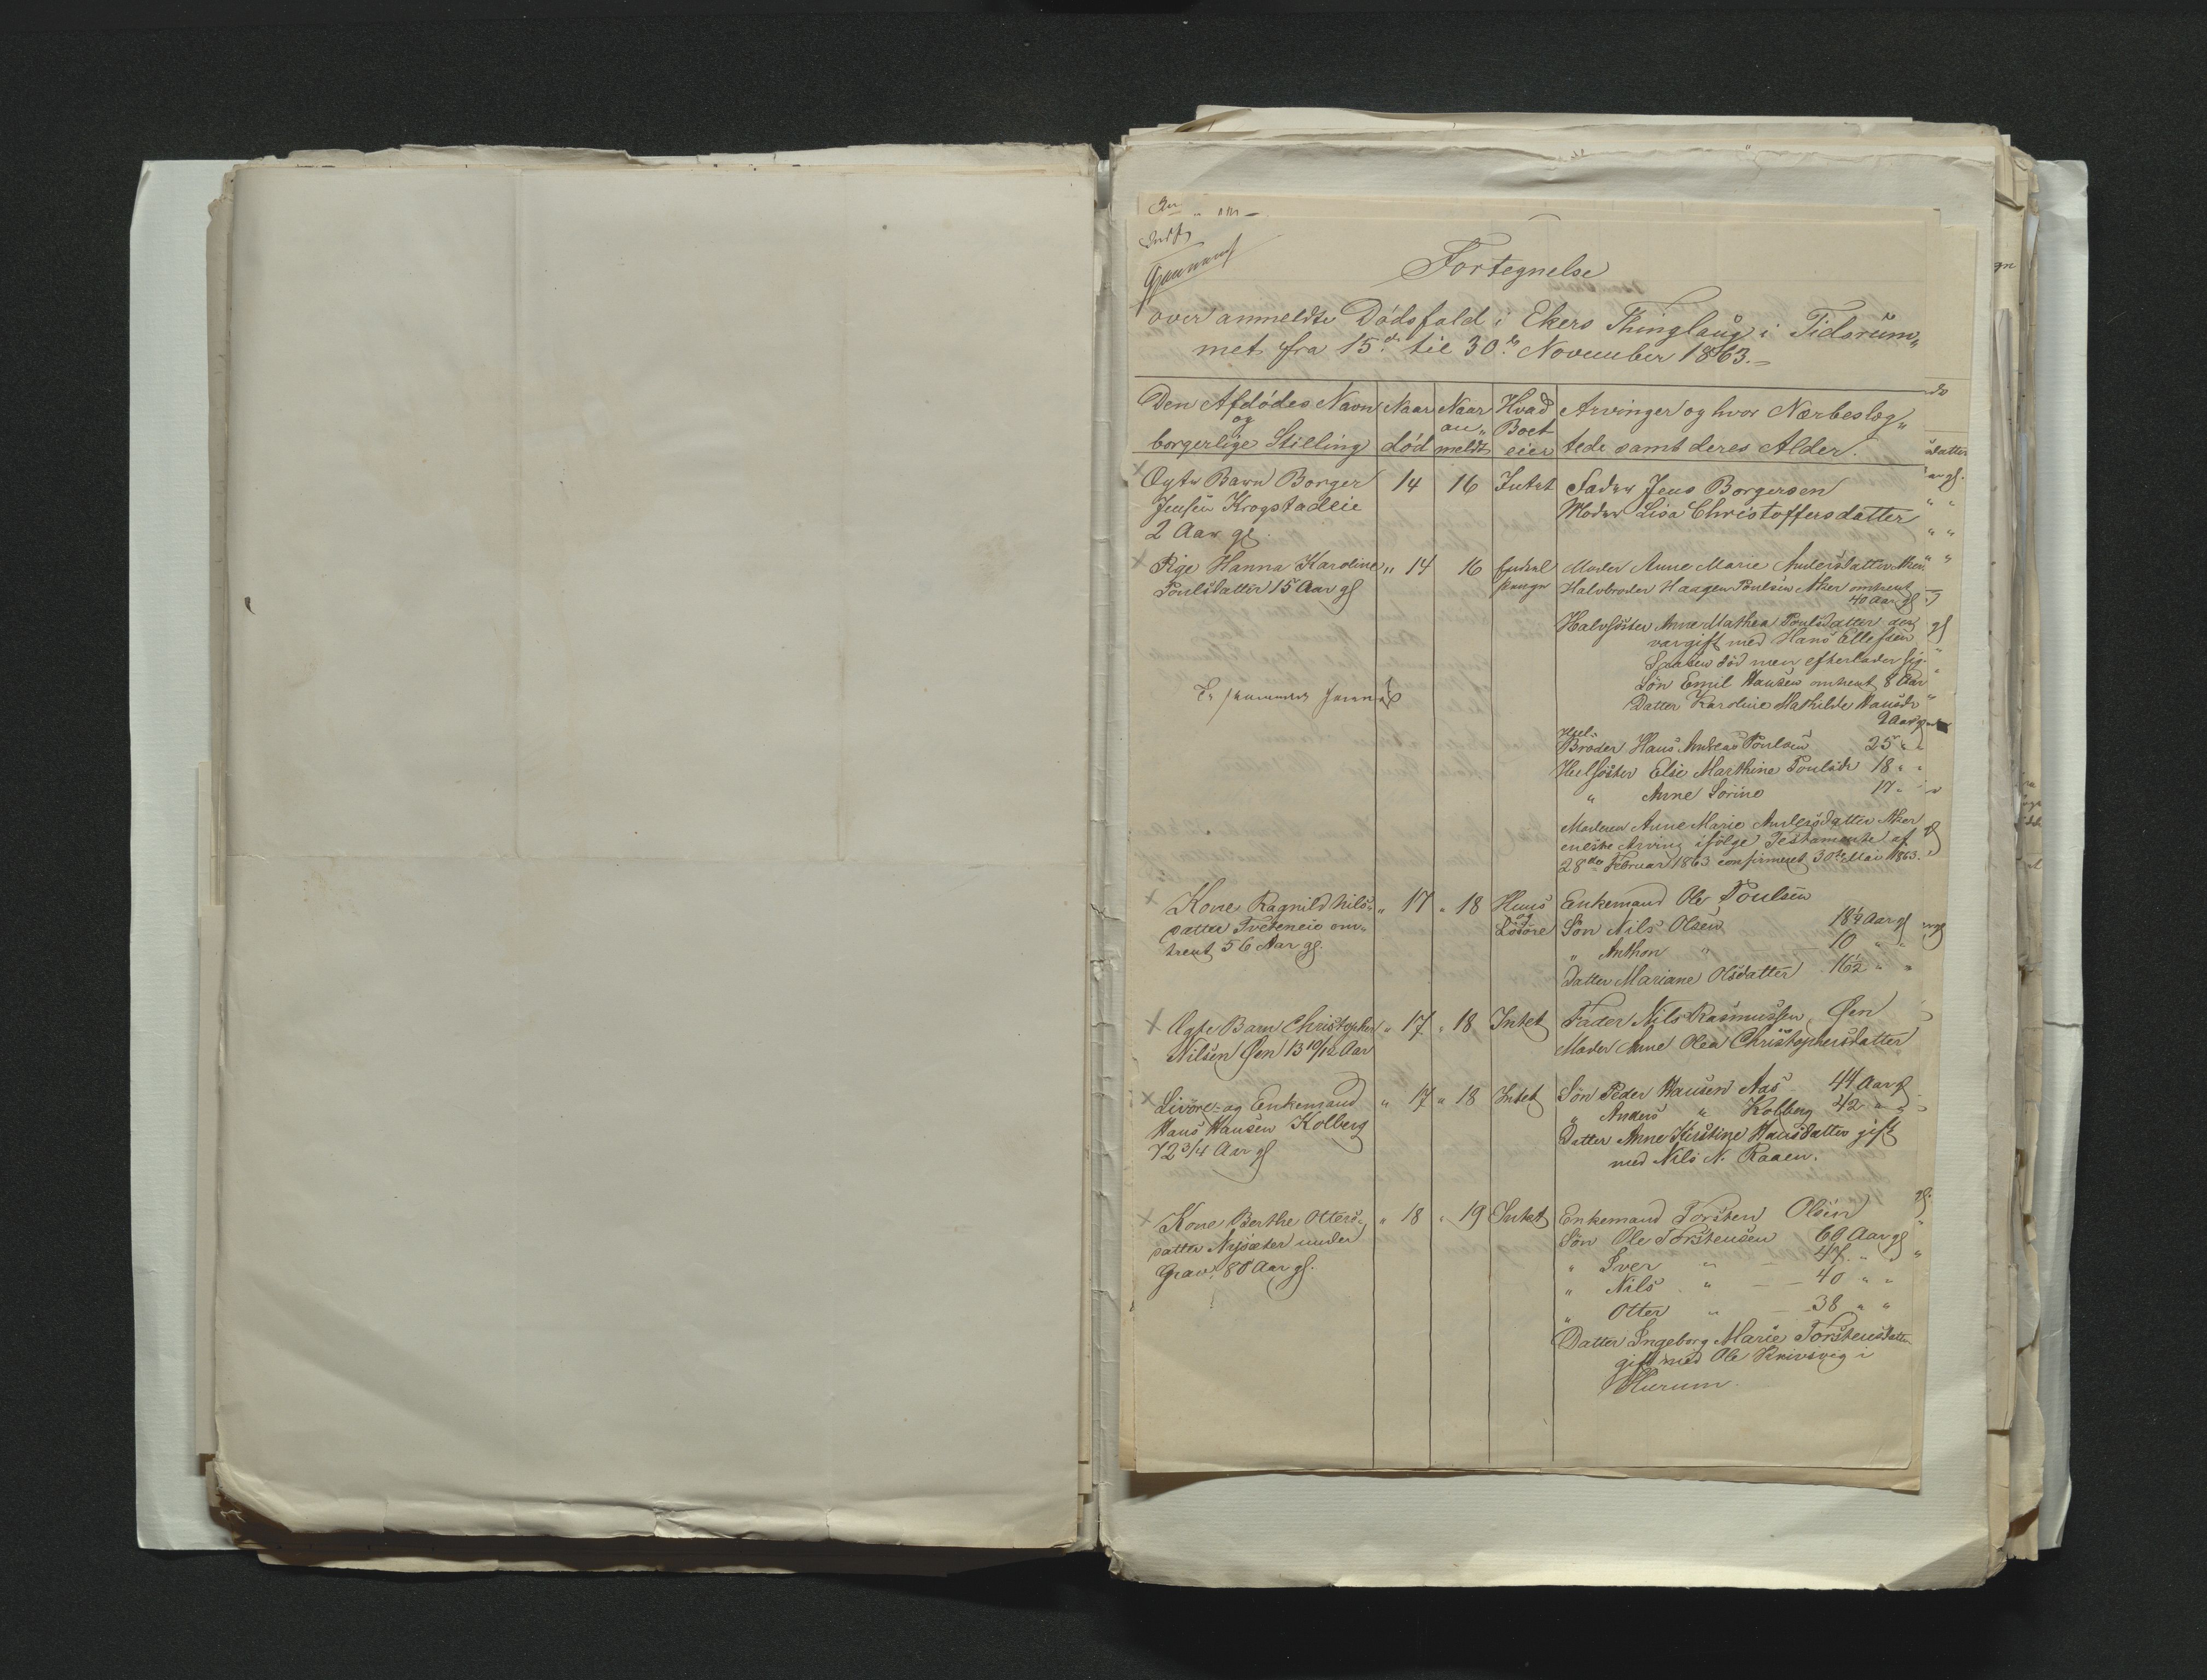 Fortegnelse
over anmeldte Dödsfald i Ekers Thinglaug i Tidsrum„
met fra 15de til 30te November 1863.
Den Afdödes Navn og borgerlige Stilling
Naar död
Naar an„meldt
Hvad Boet eier
Arvinger og hvor Nærbeslæg„tede samt deres Alder.
Ægte Barn Borger 14 16 Intet Fader Jens Borgersen
Jensen Krogstadeie Moder Lisa Christoffersdatter
2 Aar gl.
Pige Hanna Karoline „ 14 16 Moder Anne Marie Andersdatter Aker
Poulsdatter 15 Aar gl Halvbroder Haagen Poulsen Aker omtrent
40 Aar gl
Halvsöster Anne Mathea Poulsdatter der
var gift med Hans Ellefsen
död men efterlader sig.
Sön Emil Hansen omtrent 8 Aar
Datter Karoline Mathilde Hansdr
9 Aar gl
Hel-
Broder Hans Andreas Poulsen 25 " "
Helsöster Else Marthine Poulsdr 18 " "
" Anne Sorine 17 "
Moderen Anne Marie Andersdatter Aker
eneste Arving ifölge Testamente af
28de Februar 1863 confirmeret 30te Mai 1863.
Kone Ragnild Nils- " 17 " 18 Huus Enkemand Ole Poulsen
datter Tveteneie om- og Lösöre Sön Nils Olsen 18¼ Aar gl
trent 56 Aar gl. " Anthon " 10 " "
Datter Mariane Olsdatter 16½ " "
Ægte Barn Christopher " 17 " 18 Intet Fader Nils Rasmussen Øen
Nilsen Øen 13 10/12 Aar Moder Anne Olea Christophersdatter
Livöre- og Enkemand " 17 " 18 Intet Sön Peder Hansen Aas 44 Aar gl
Hans Hansen Kolberg " Anders " Kolberg 42 " "
72 3/4 Aar gl Datter Anne Kirstine Hansdatter gift
med Nils N. Raaen.
Kone Berthe Otters- " 18 " 19 Intet Enkemand Torsten Olsen
datter Nysæter under Sön Ole Torstensen 60 Aar gl
Grav. 80 Aar gl. " Iver " 47 " "
" Nils " 40 " "
" Otter " 38 " "
Datter Ingeborg Marie Torstensdatter
gift med Ole Knivsvig i
Hurum.